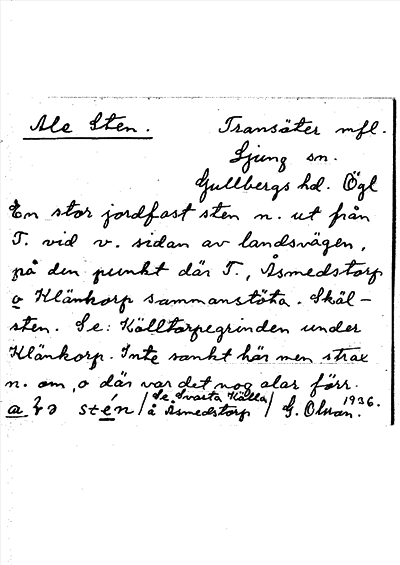 Ale Sten. Transäter mfl.
Ljung sn.
Gullbergs hd. Ögl
En stor jordfast sten n. ut från
T. vid v. sidan av landsvägen,
på den punkt där T., Åsmedstorp
o Klänkorp sammanstöta. Skäl-
sten. Se: Källtorpegrinden under
Klänkorp. Inte sankt här men strax
n. om, o där var det nog alar förr.
sten / Se Svarta Källa
å Åsmedstorp / G. Olsson. 1936.